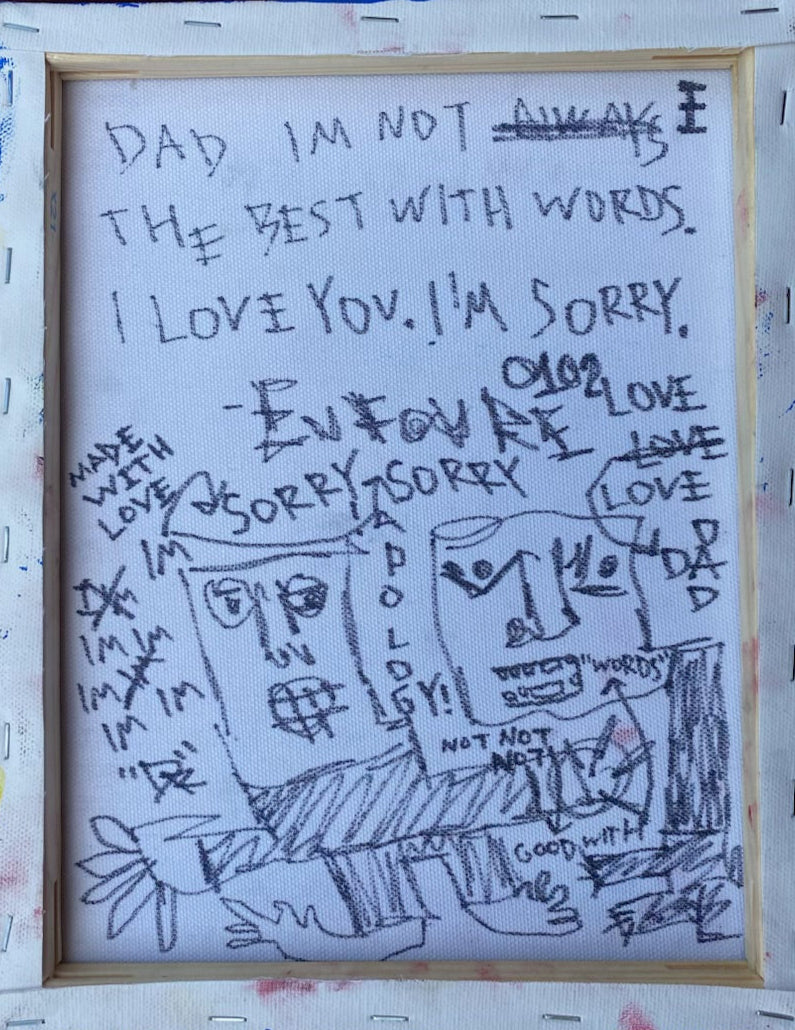 DAD IM NOT ALWAYS
THE BEST WITH WORDS.
I LOVE YOU. I'M SORRY.
0102
LOVE
LOVE
LOVE
MADE
WITH
LOVE
SORRY SORRY
APOLOGY!
DAD
DAD
IM
IM
IM
IM
IM
IM
"WORDS"
NOT NOT
NOT
GOOD WITH